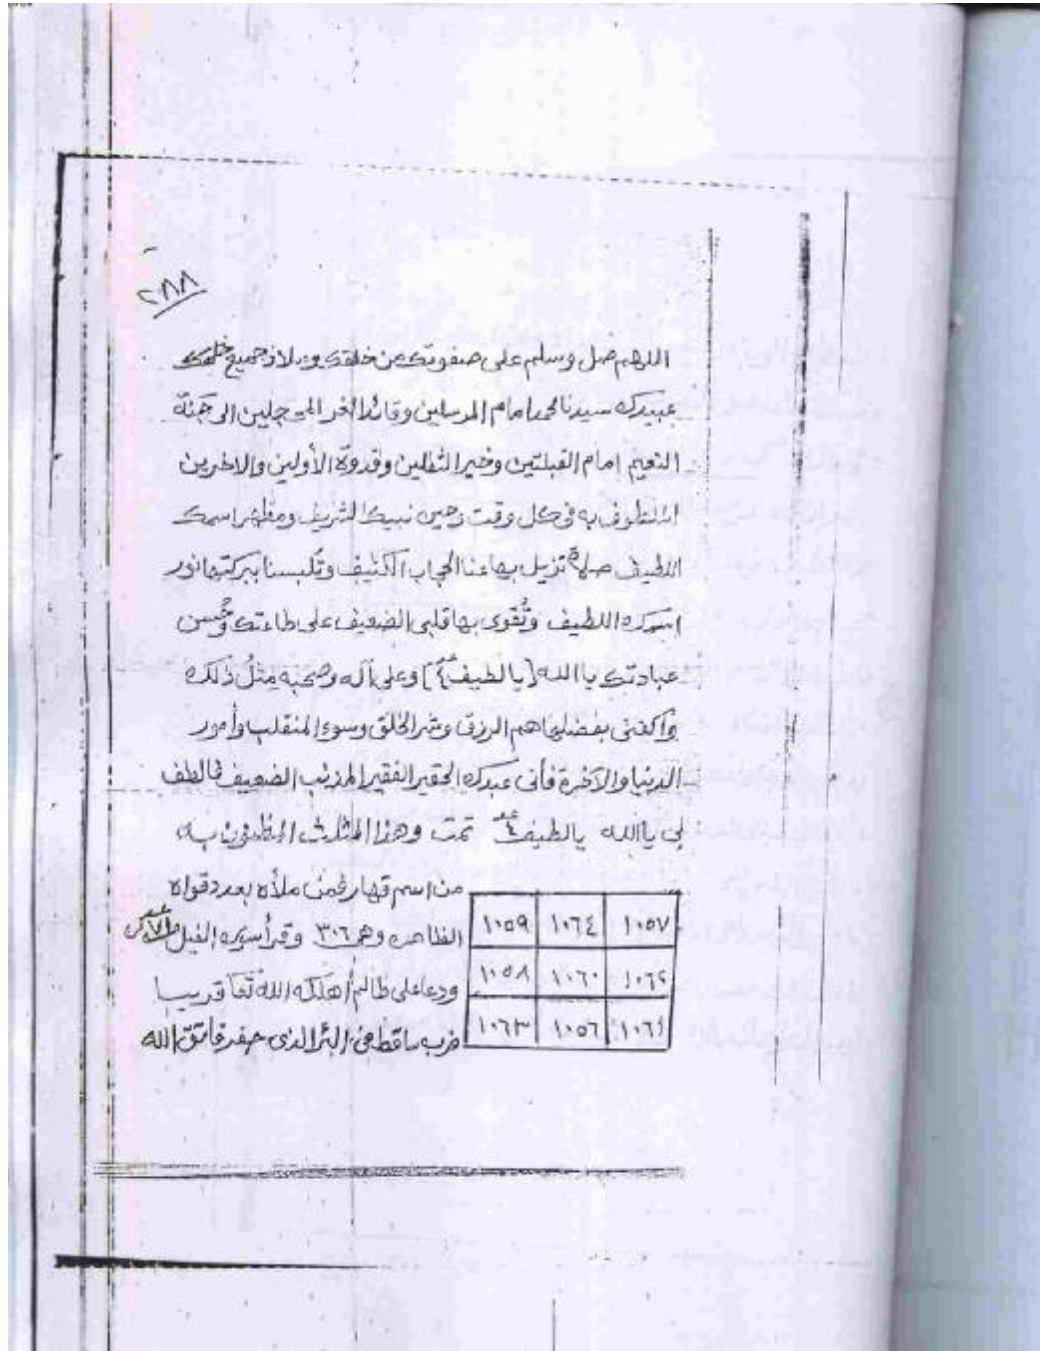 ٢٨٨
اللهم صل وسلم على صفوتك من خلقك وملاذ جميع خلقك
عبيدك سيدنا محمد امام المرسلين وقائد الغر المحجلين الى جنة
النعيم امام القبلتين وخير الثقلين وقدوة الأولين والاخرين
الملطوف به فى كل وقت وحين نبيك الشريف ومظهر اسمك
اللطيف صلاة تزيل بها عنا الحجاب الكثيف وتلبسنا ببركتها نور
اسمك اللطيف وتُقوى بها قلبى الضعيف على طاعتك وحُسن
عبادتك يا الله (يا لطيف عدد ٤) وعلى آله وصحبه مِثلُ ذلك
واكفنى بفضلها هم الرزق وشر الخلق وسوء المنقلب وأمور
الدنيا والآخرة فأنى عبدك الحقير الفقير المذنب الضعيف فالطف
لى يا الله يا لطيف عدد ٤ تمت وهذا المثلث المظنون به
من اسم قهار فمن ملأه بعدد قواه
الظاهره وهى ٣٠٦ وقرأ سوره الفيل عدد ٧١
ودعا على ظالم أهلكه الله تعا قريبا
فربه ساقط فى البئر الذى حفر فاتق الله
١٠٥٧ ١٠٦٤ ١٠٥٩
١٠٦٢ ١٠٦٠ ١٠٥٨
١٠٦١ ١٠٥٦ ١٠٦٣